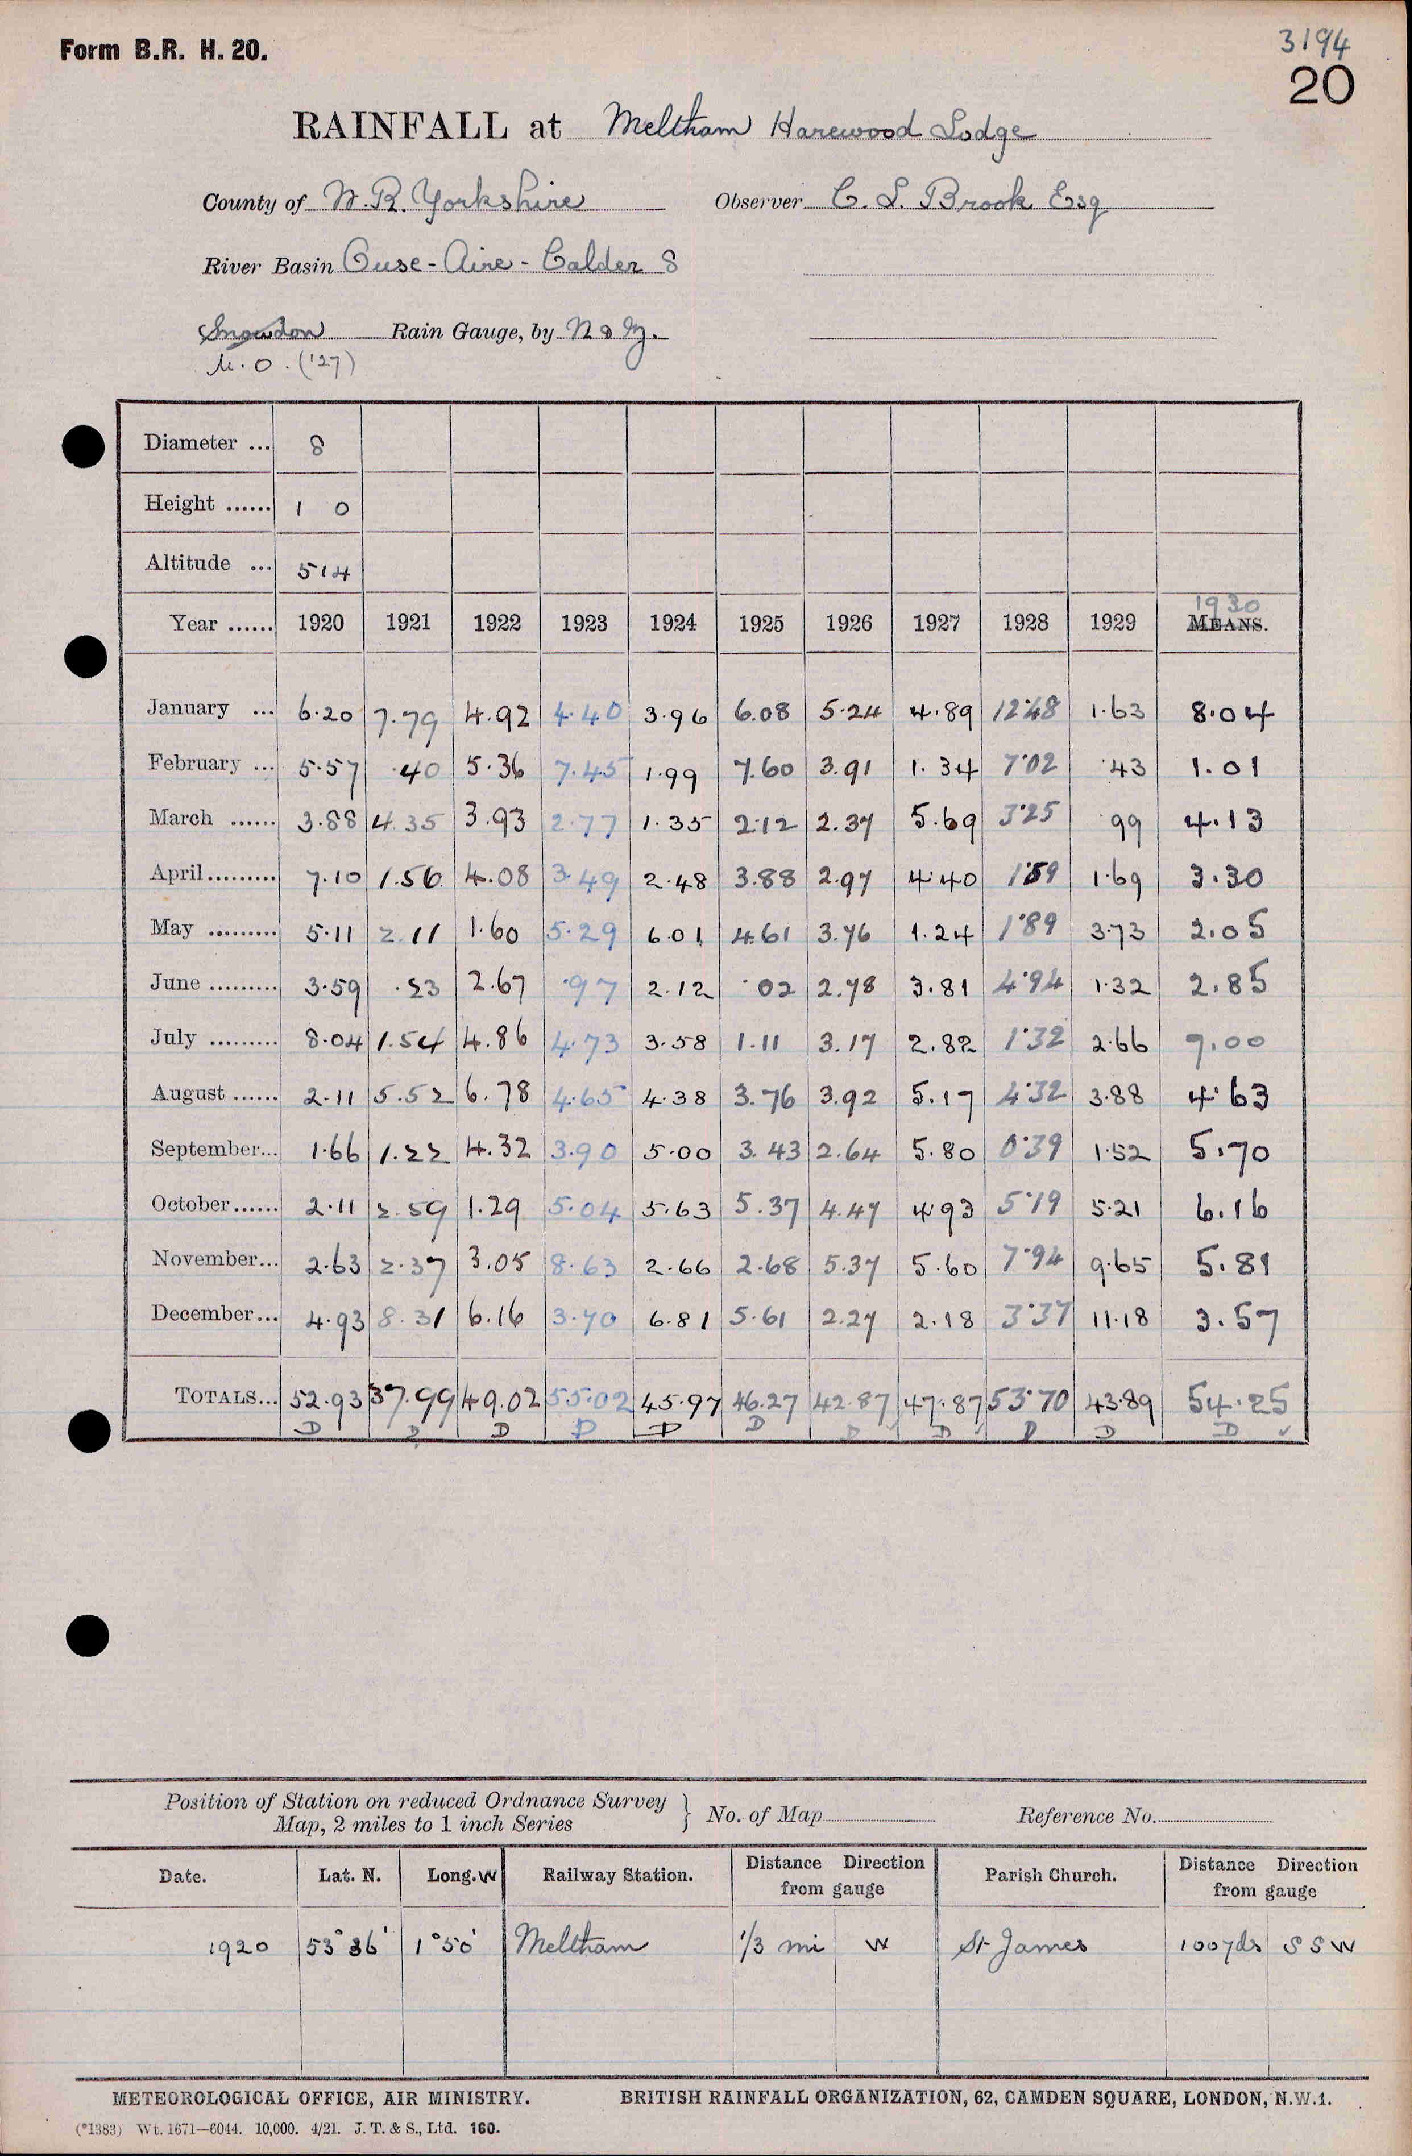 Form B.R. H. 20.
3194
20
RAINFALL at Meltham Harewood Lodge
County of W.R. Yorkshire Observer C. L. Brook Esq
River Basin Ouse - Aire - Calder 8
Snowdon Rain Gauge, by N & Z.
M.O. ('27)
Diameter ... 8
Height ...... 1 0
Altitude ... 514
1930
Year ...... 1920 1921 1922 1923 1924 1925 1926 1927 1928 1929 MEANS.
January ... 6.20 7.79 4.92 4.40 3.96 6.08 5.24 4.89 12.48 1.63 8.04
February ... 5.57 .40 5.36 7.45 1.99 7.60 3.91 1.34 7.02 .43 1.01
March ...... 3.88 4.35 3.93 2.77 1.35 2.12 2.37 5.69 3.25 .99 4.13
April......... 7.10 1.56 4.08 3.49 2.48 3.88 2.97 4.40 1.59 1.69 3.30
May ......... 5.11 2.11 1.60 5.29 6.01 4.61 3.76 1.24 1.89 3.73 2.05
June ......... 3.59 .23 2.67 .97 2.12 .02 2.78 3.81 4.94 1.32 2.85
July ......... 8.04 1.54 4.86 4.73 3.58 1.11 3.17 2.82 1.32 2.66 7.00
August ...... 2.11 5.52 6.78 4.65 4.38 3.76 3.92 5.17 4.32 3.88 4.63
September... 1.66 1.22 4.32 3.90 5.00 3.43 2.64 5.80 0.39 1.52 5.70
October...... 2.11 2.59 1.29 5.04 5.63 5.37 4.47 4.93 5.19 5.21 6.16
November... 2.63 2.37 3.05 8.63 2.66 2.68 5.37 5.60 7.94 9.65 5.81
December... 4.93 8.31 6.16 3.70 6.81 5.61 2.27 2.18 3.37 11.18 3.57
TOTALS... 52.93 37.99 49.02 55.02 45.97 46.27 42.87 47.87 53.70 43.89 54.25
D D D D D D D D D D D
Position of Station on reduced Ordnance Survey Map, 2 miles to 1 inch Series } No. of Map Reference No.
Date. Lat. N. Long. W Railway Station. Distance Direction from gauge Parish Church. Distance Direction from gauge
1920 53°36' 1°50' Meltham 1/3 mi W St James 100yds S S W
METEOROLOGICAL OFFICE, AIR MINISTRY. BRITISH RAINFALL ORGANIZATION, 62, CAMDEN SQUARE, LONDON, N.W.1.
(*1383) Wt. 1671—6044. 10,000. 4/21. J. T. & S., Ltd. 160.